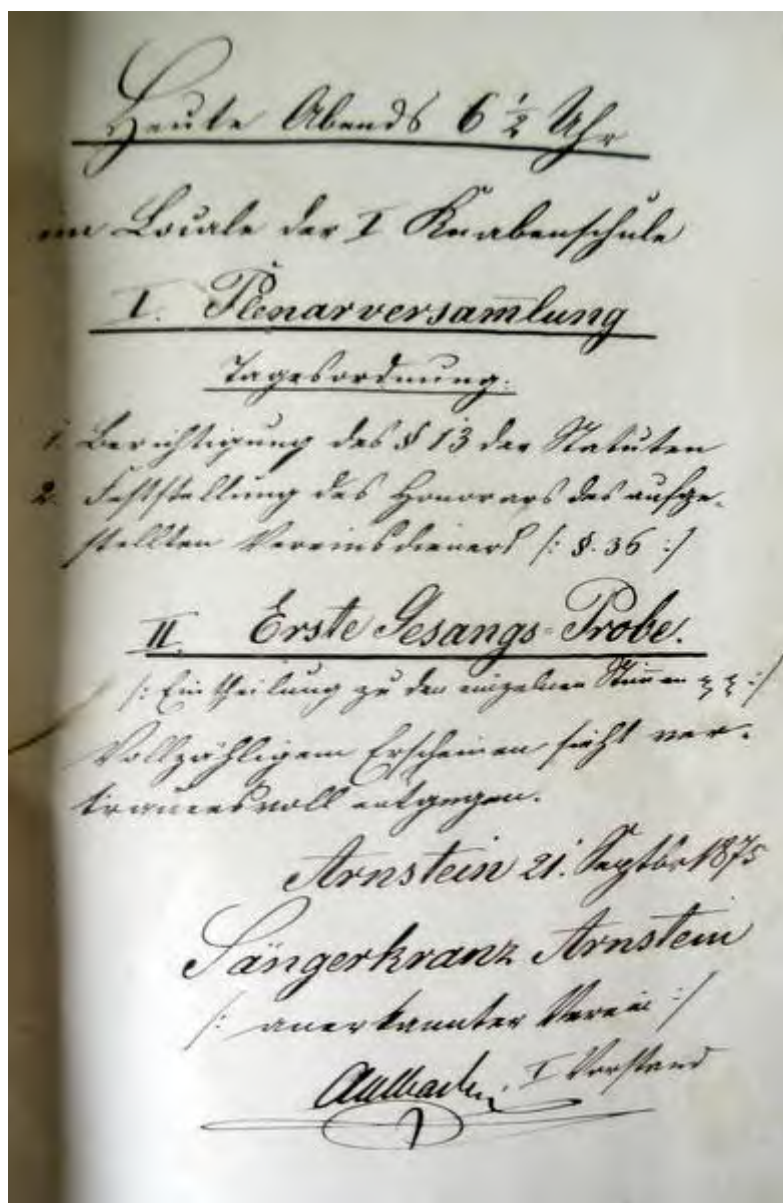 Heute Abends 6 ½ Uhr
im Locale der I Knabenschule
I. Plenarversam̅lung
Tagesordnung:
1. Berichtigung des § 13 der Statuten
2. Feststellung des Honorars des aufge-
stellten Vereinsdieners /: §. 36 :/
II. Erste Gesangs-Probe.
/: Eintheilung zu den einzelnen Stim̅en :/
Vollzähligem Erscheinen sieht ver-
trauensvoll entgegen.
Arnstein 21. Septbr 1875
Sängerkranz Arnstein
/: anerkannter Verein :/
I Vorstand